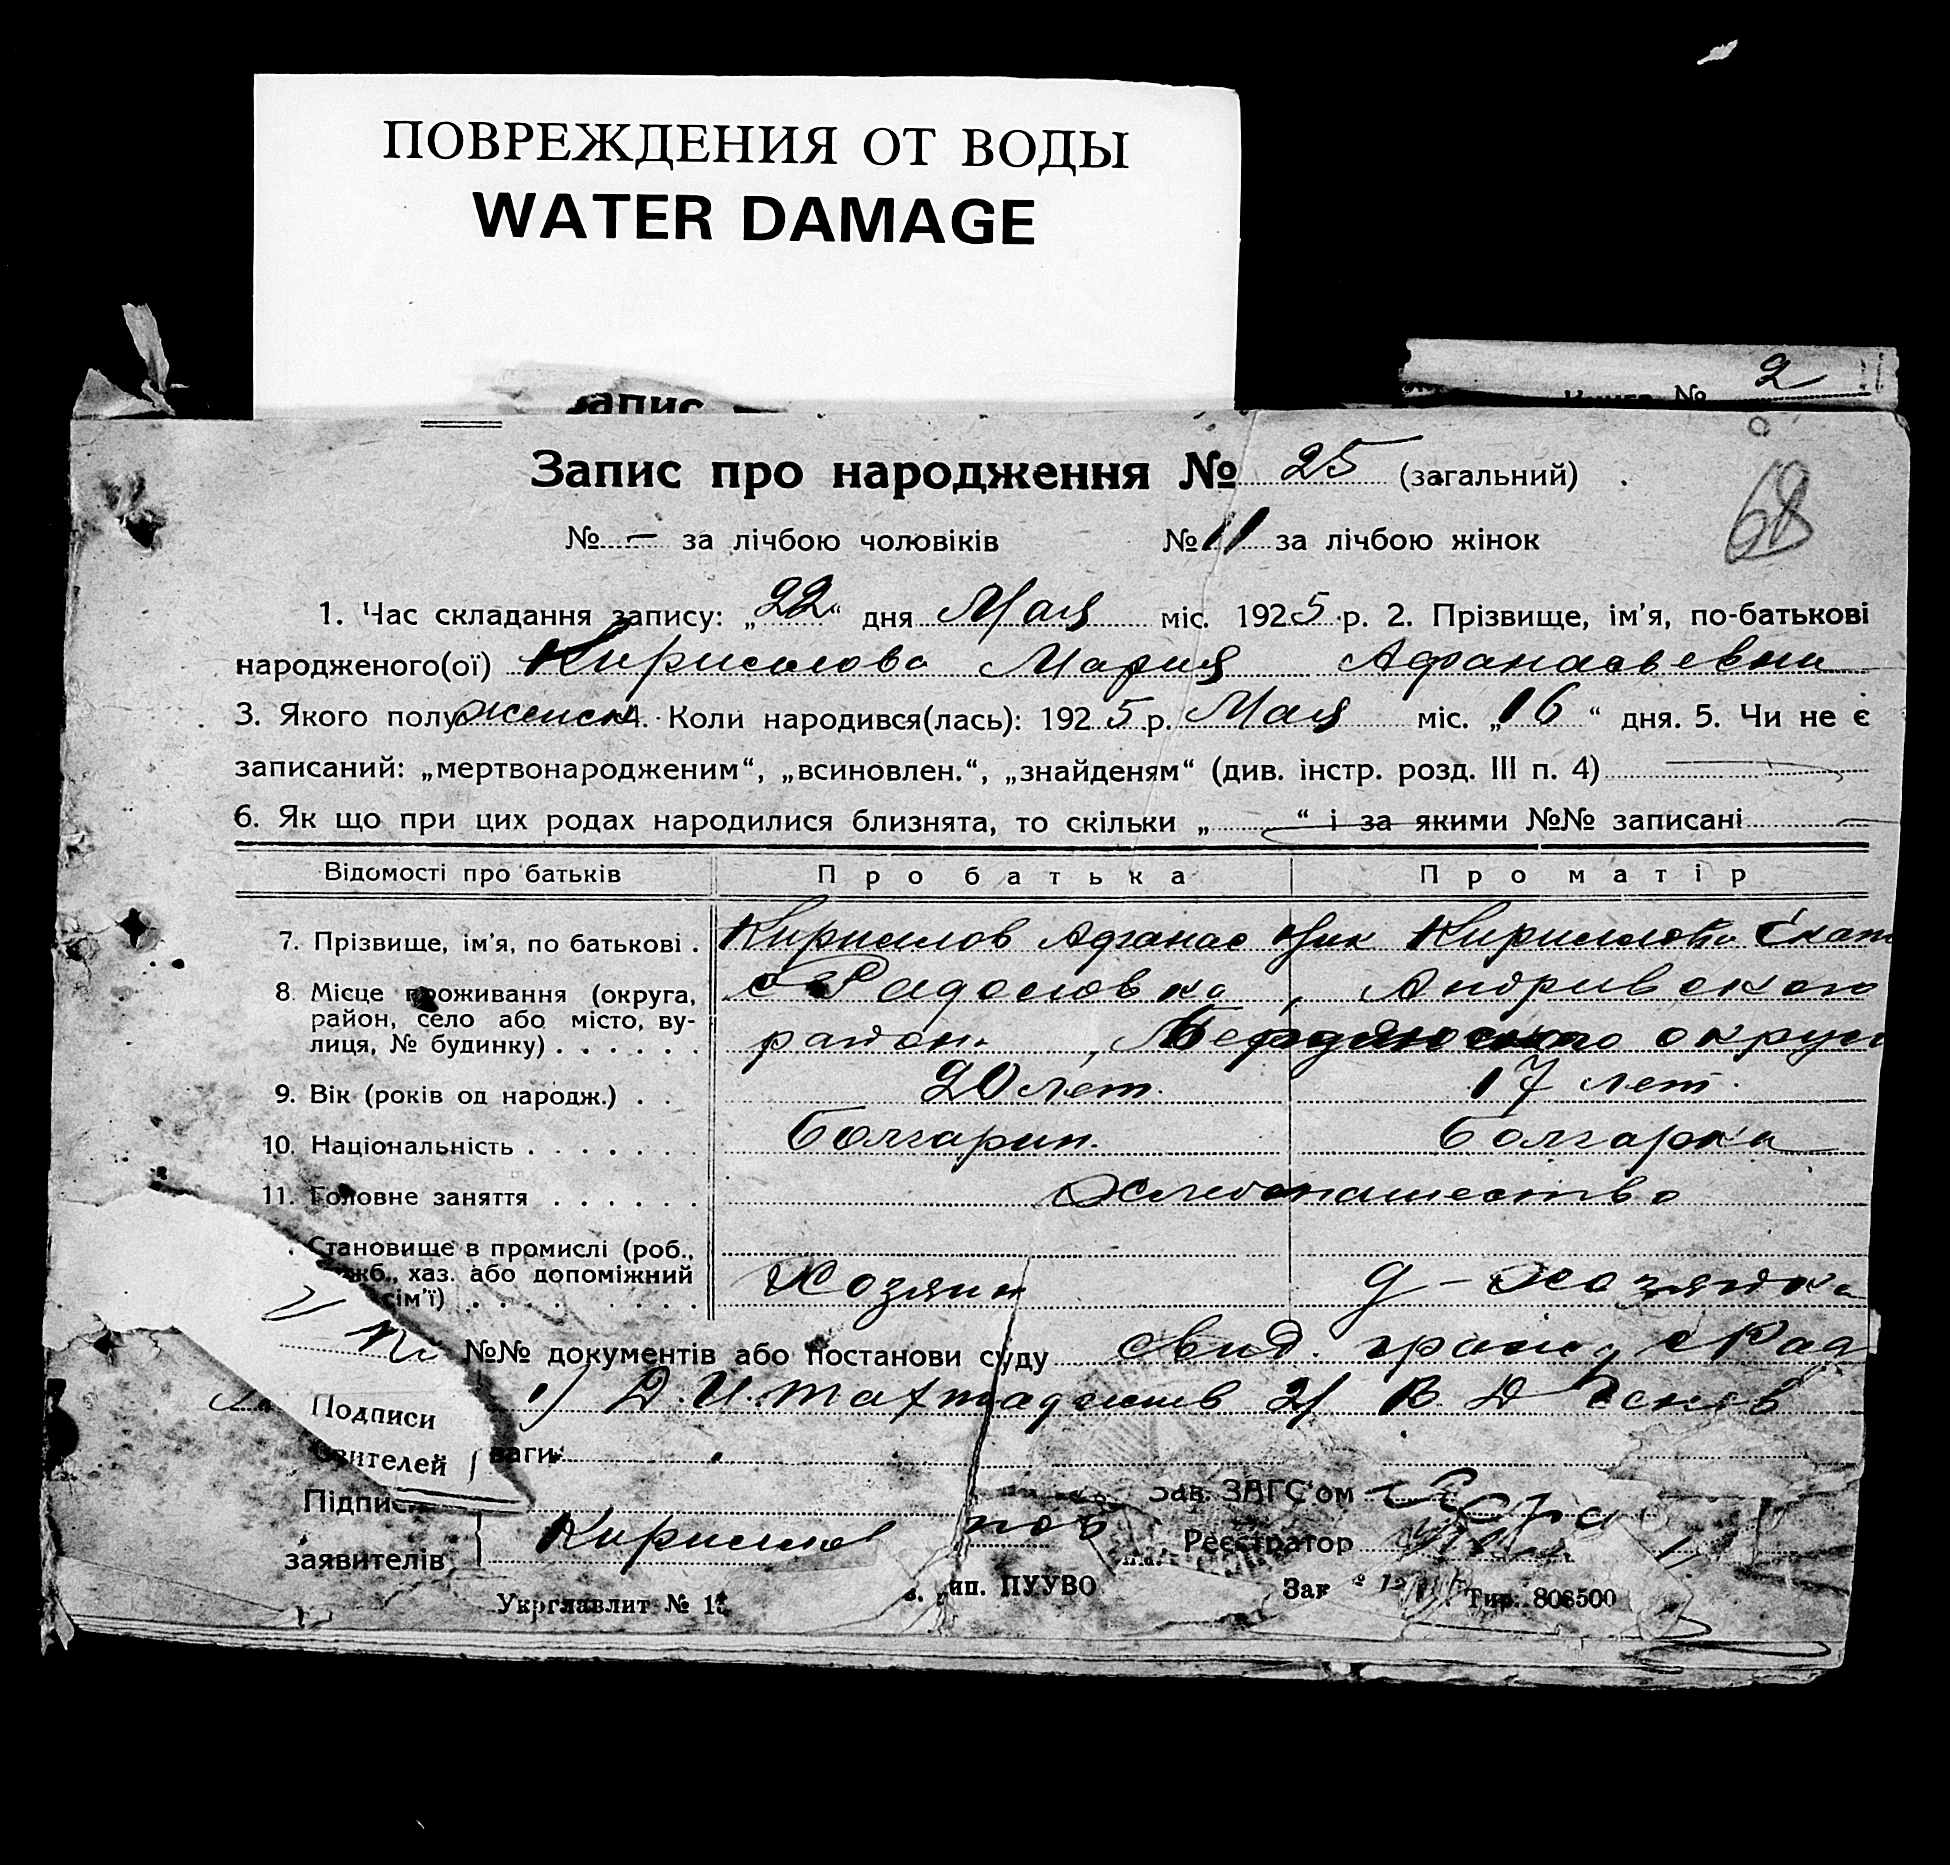 ПОВРЕЖДЕНИЯ ОТ ВОДЫ
WATER DAMAGE
апис
№ 2
Запис про народження № 25 (загальний)
68
№ – за лічбою чоловіків № 11 за лічбою жінок
1. Час складання запису: „22“ дня Мая міс. 1925 р. 2. Прізвище, ім'я, по-батькові
народженого(ої) Кириллова Мария Афанасьевна
3. Якого полу женск 4. Коли народився(лась): 1925 р. Мая міс. „16“ дня. 5. Чи не є
записаний: „мертвонародженим“, „всиновлен.“, „знайденям“ (див. інстр. розд. III п. 4)
6. Як що при цих родах народилися близнята, то скільки „ “ і за якими №№ записані
Відомості про батьків Про батька Про матір
7. Прізвище, ім'я, по батькові . Кириллов Афанас Кириллова Екат
8. Місце проживання (округа, с Радоловка, Андривского
район, село або місто, ву-
лиця, № будинку) . . . . . . район., Бердянского округи
9. Вік (років од народж.) . . 20 лет. 17 лет.
10. Національність . . . . . . . Болгарин. болгарка
11. Головне заняття . . . . . . Хлебопашество
Становище в промислі (роб.,
жб., хаз. або допоміжний
сім'ї) . . . . . . . . Хозяин д-хозяйка
№№ документів або постанови суду свид.
1) Д. И. 2) В Д
Подписи
ваги:
вителей
Зав. ЗАГС'ом
Підпис
Кириллов
Реєстратор
заявителів
Укрглавлит № 1 ип. ПУУВО Зак Тир. 808500